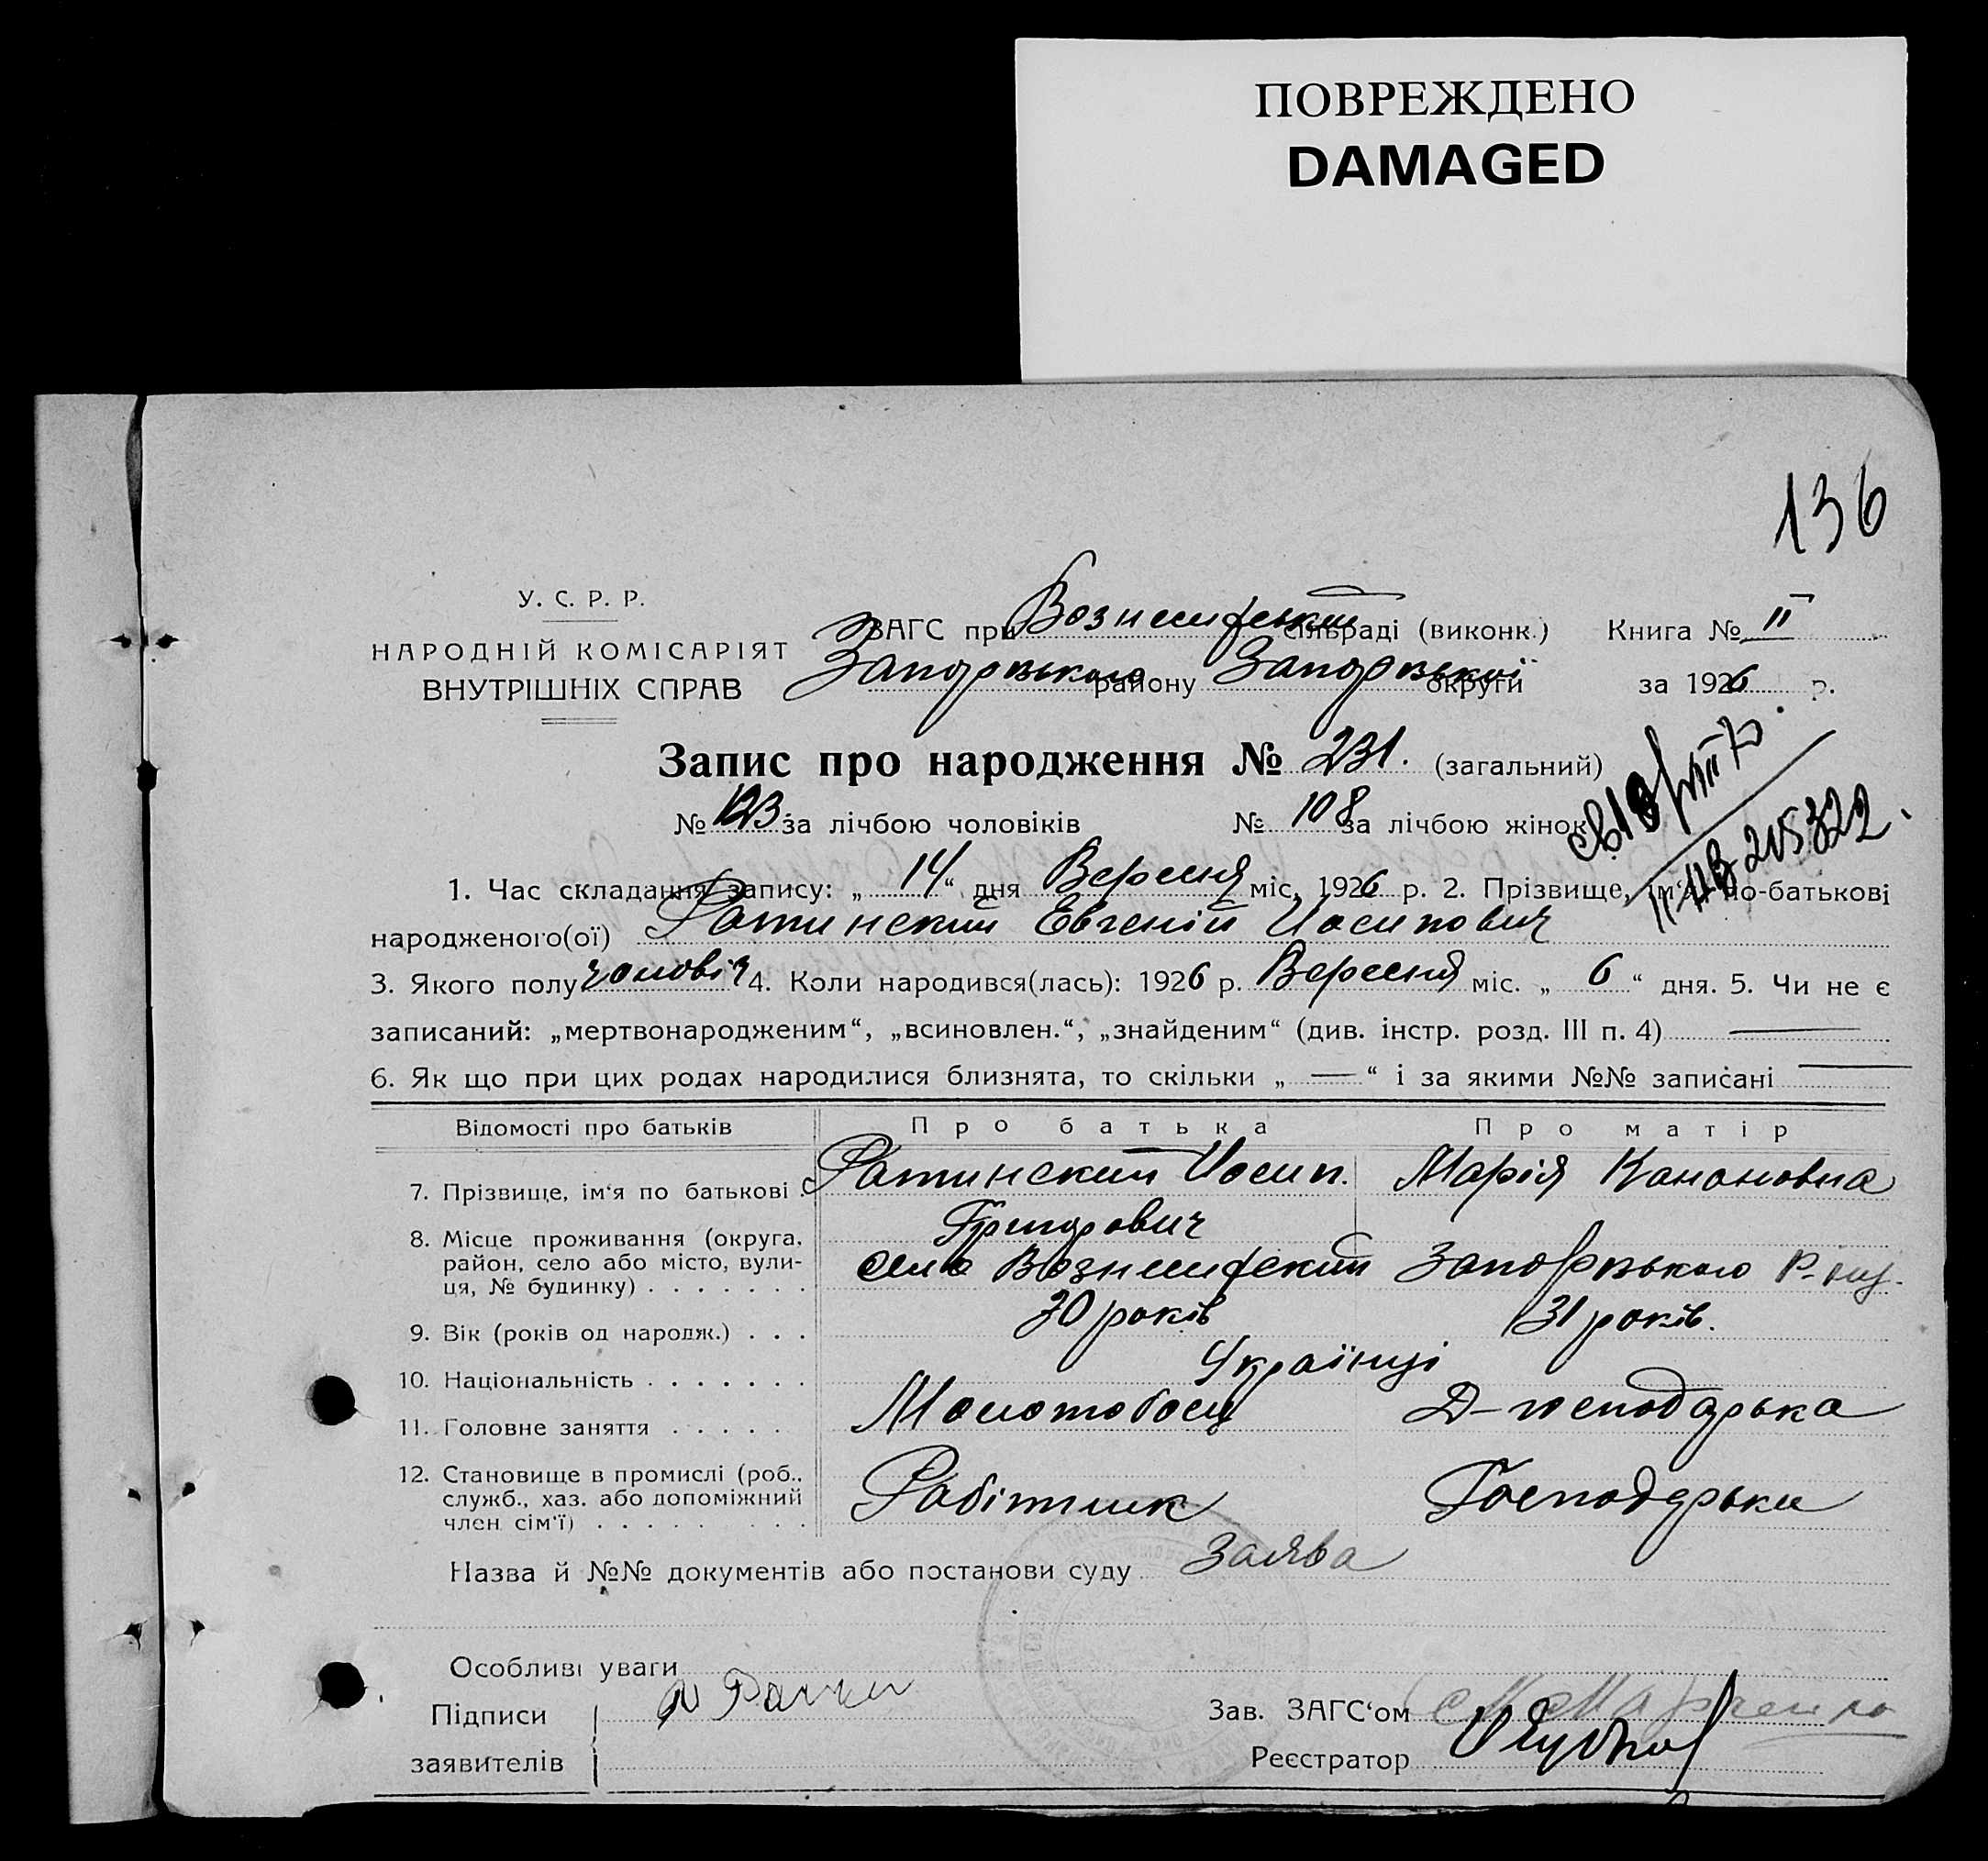 ПОВРЕЖДЕНО
DAMAGED
136
У. С. Р. Р.
НАРОДНІЙ КОМІСАРІЯТ
ВНУТРІШНІХ СПРАВ
ЗАГС при сільраді (виконк.) Книга № II
Запорізького району Запорізької округи за 1926 р.
Запис про народження № 231. (загальний)
№ 123 за лічбою чоловіків № 108 за лічбою жінок
1. Час складання запису: „ 14 “ дня Вересня міс. 1926 р. 2. Прізвище, ім‘я, по-батькові
народженого(ої) Ратинский Евгеній Иосипович
3. Якого полу чоловіч 4. Коли народився(лась): 1926 р. Вересня міс. „ 6 “ дня. 5. Чи не є
записаний: „мертвонародженим“, „всиновлен.“, „знайденим“ (див. інстр. розд. III п. 4) —
6. Як що при цих родах народилися близнята, то скільки „ — “ і за якими №№ записані —
Відомості про батьків Про батька Про матір
7. Прізвище, ім‘я по батькові . Ратинский Иосип. Марія Канановна
Григорович
8. Місце проживання (округа, район, село або місто, вули-
ця, № будинку) . . . . . . . село Запорізького
9. Вік (років од народж.) . . . 30 років 31 років.
10. Національність . . . . . . . Українці
11. Головне заняття . . . . . Молотобоец Д-господарька
12. Становище в промислі (роб.,
служб., хаз. або допоміжний
член сім'ї) . . . . . . . Робітник Господарька
Назва й №№ документів або постанови суду Заява
Особливі уваги
Підписи
заявителів
Зав. ЗАГС‘ом
Реєстратор